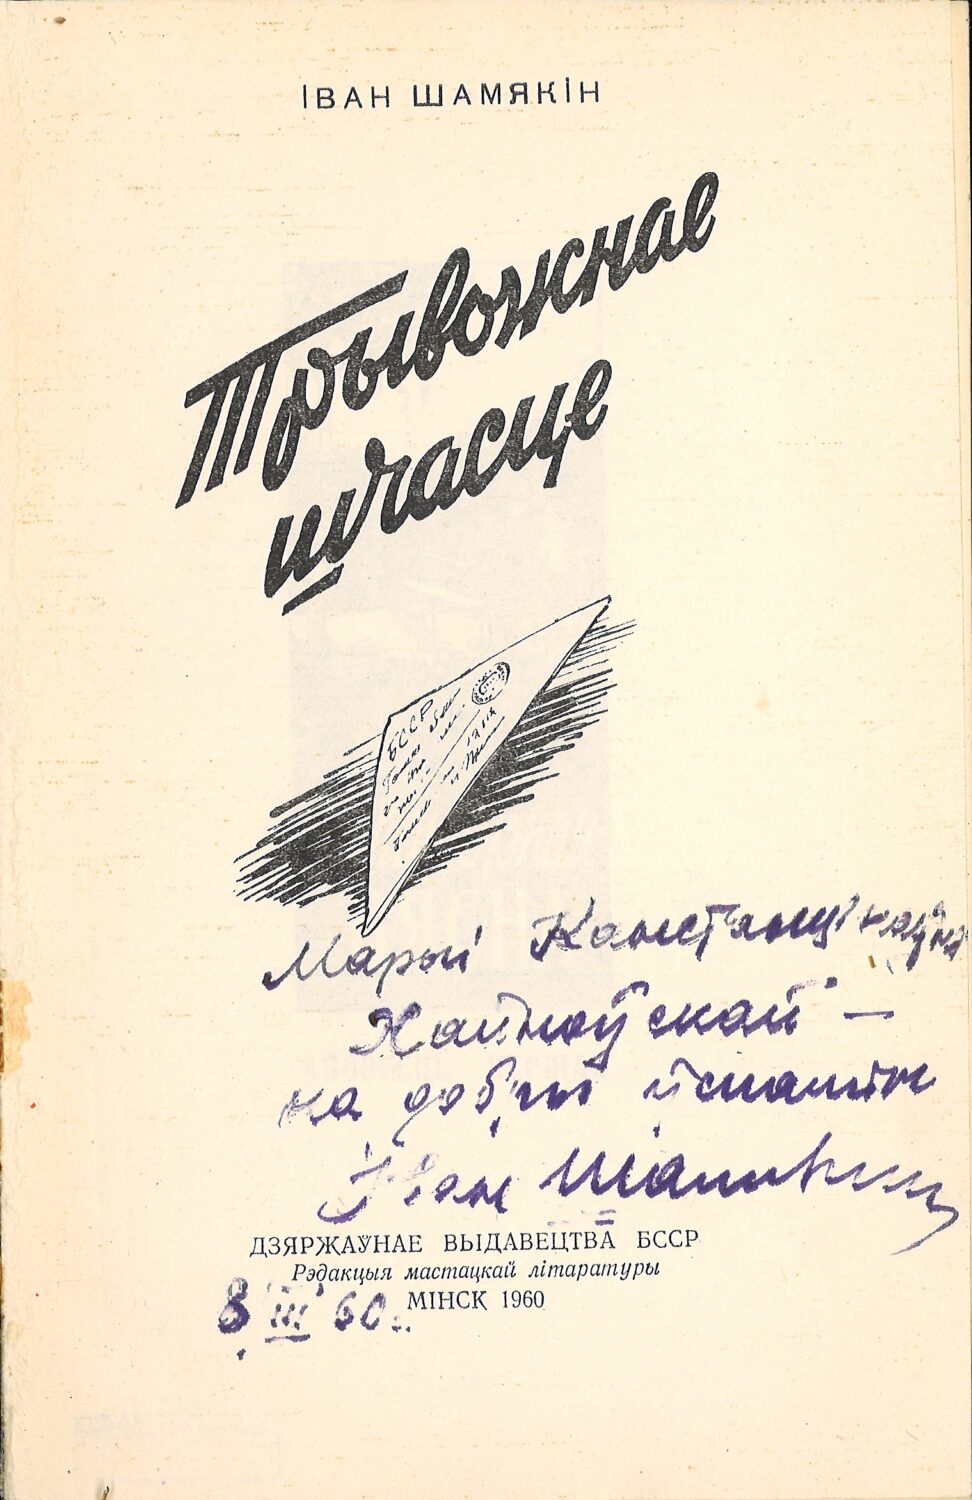 ІВАН ШАМЯКІН
Трывожнае
шчасце
БССР
Марыі Канстанцінаўне
Хайноўскай —
на добры ўспамін
Іван Шамякін
ДЗЯРЖАЎНАЕ ВЫДАВЕЦТВА БССР
Рэдакцыя мастацкай літаратуры
МІНСК 1960
8 III 60 г.